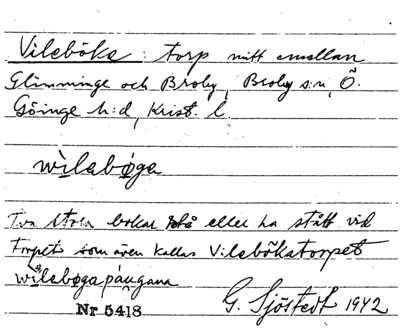 Vileböke : torp mitt emellan
Glimminge och Broby, Broby s:n, Ö.
Göinge h:d, Krist. l.
wìlebøga
Två stora bokar stå eller ha stått vid
torpet som även kallas Vilebökatorpet
wìlebøgapáugana
Nr 5418
G. Sjöstedt 1942